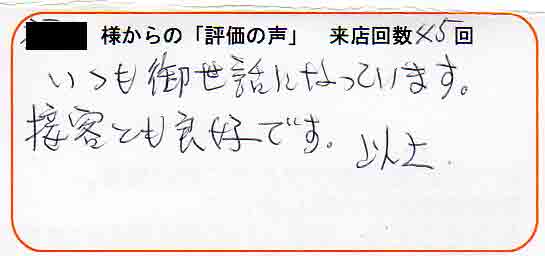 様からの「評価の声」 来店回数45回
いつも御世話になっています。
接客とも良好です。以上.